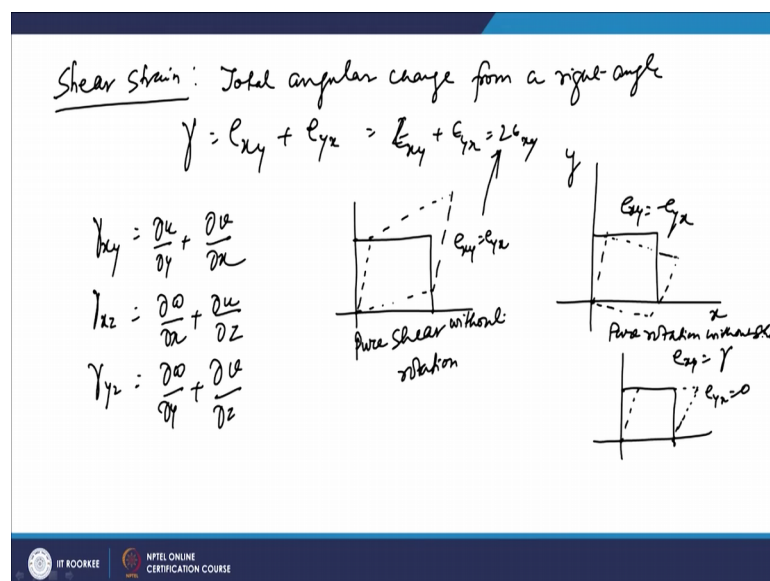 Shear Strain: Total angular change from a right-angle
γ = e_xy + e_yx = ε_xy + ε_yx = 2ε_xy
γ_xy = ∂u/∂y + ∂v/∂x
γ_xz = ∂ω/∂x + ∂u/∂z
γ_yz = ∂ω/∂y + ∂v/∂z
e_xy = e_yx
Pure Shear without
rotation
y
e_xy = -e_yx
x
Pure rotation without
e_xy = γ
e_yx = 0
IIT ROORKEE
NPTEL ONLINE
CERTIFICATION COURSE